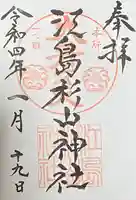 奉拝
江島杉山神社
令和四年一月十九日